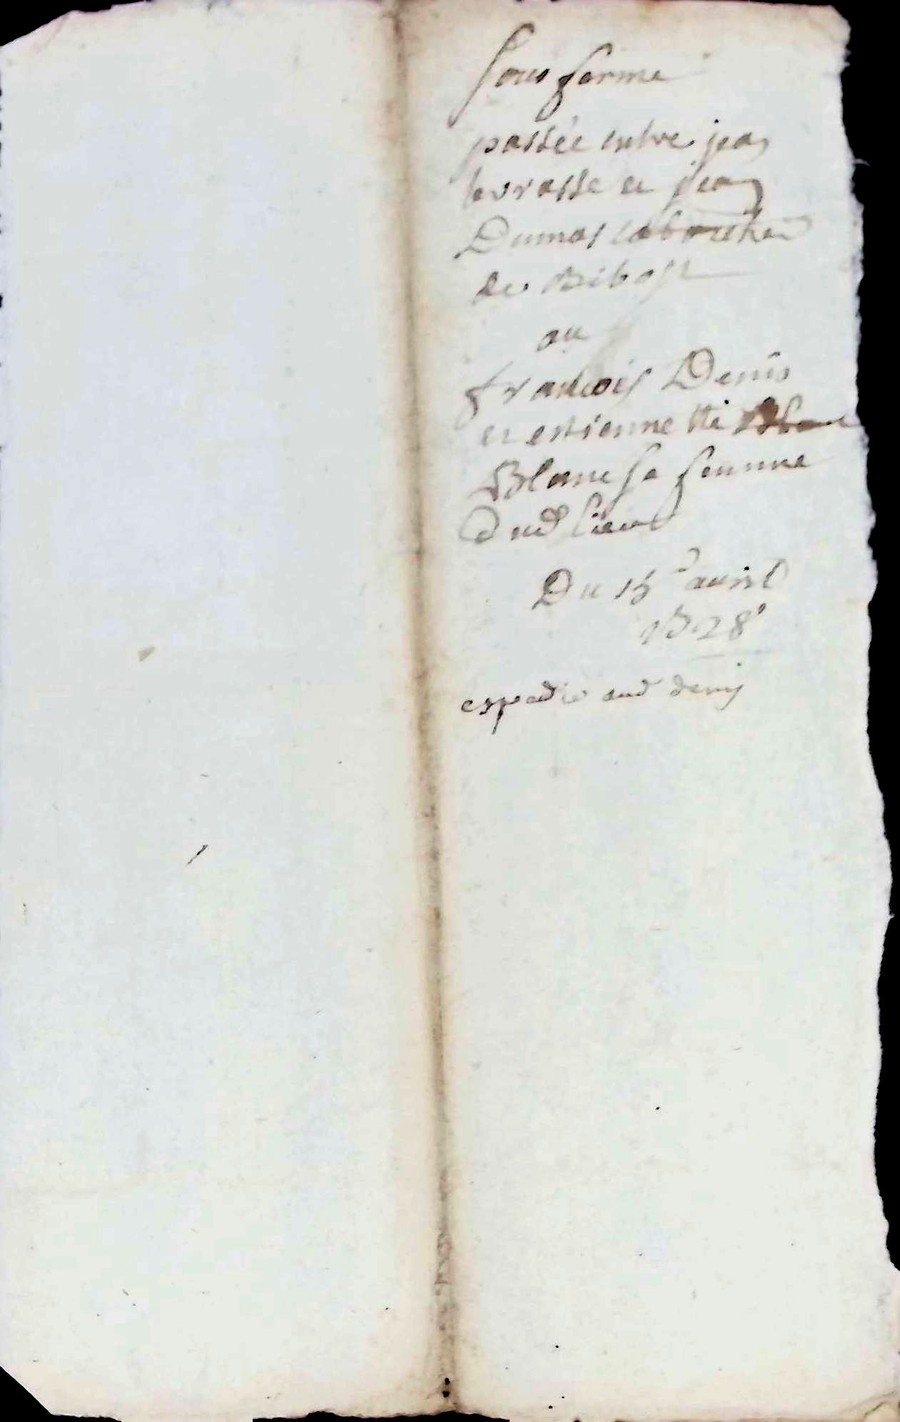 Sous ferme
passée entre jean
et jean
Dumas laboureur
de Bibost
au
francois Denis
et estiennette
Blanc sa femme
dud lieu
Du 15e avril
1728
espedie aud denis